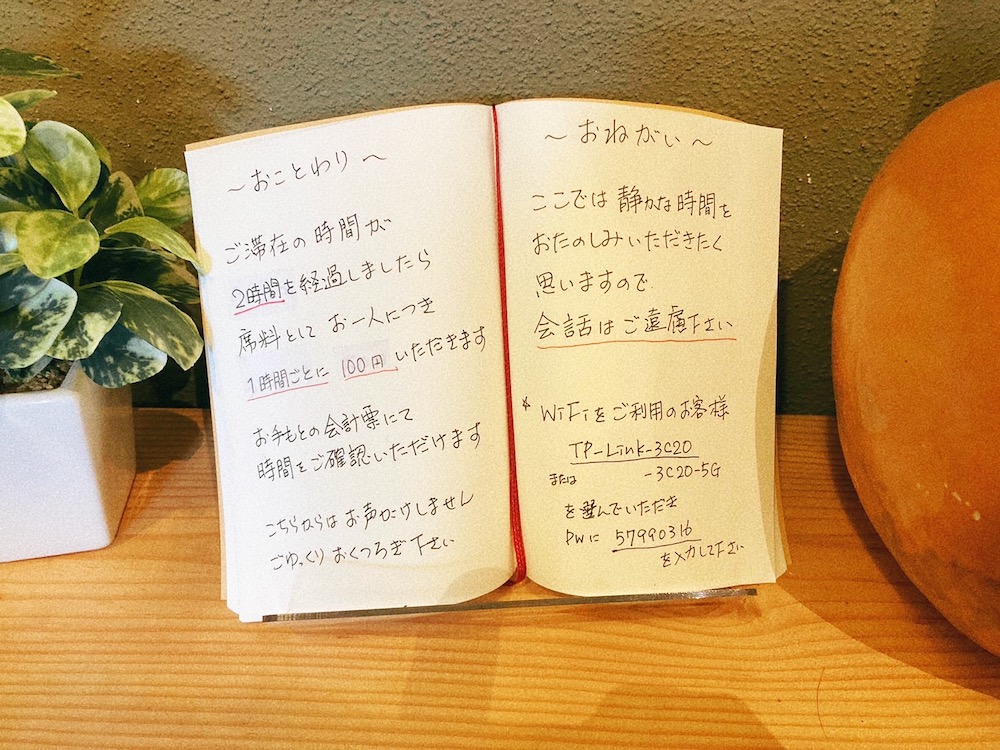 ～おことわり～
ご滞在の時間が
2時間を経過しましたら
席料として お一人につき
1時間ごとに 100円 いただきます
お手もとの会計票にて
時間をご確認いただけます
こちらからは お声がけしません
ごゆっくり おくつろぎ下さい
～おねがい～
ここでは 静かな時間を
おたのしみいただきたく
思いますので
会話はご遠慮下さい
* WiFiをご利用のお客様
TP-Link-3C20
または -3C20-5G
を選んでいただき
PWに 57990316
を入力して下さい